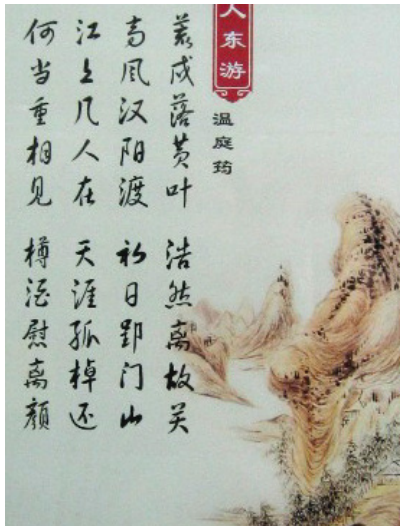 人东游
温庭筠
荒戍落黄叶 浩然离故关
高风汉阳渡 初日郢门山
江上几人在 天涯孤棹还
何当重相见 樽酒慰离颜